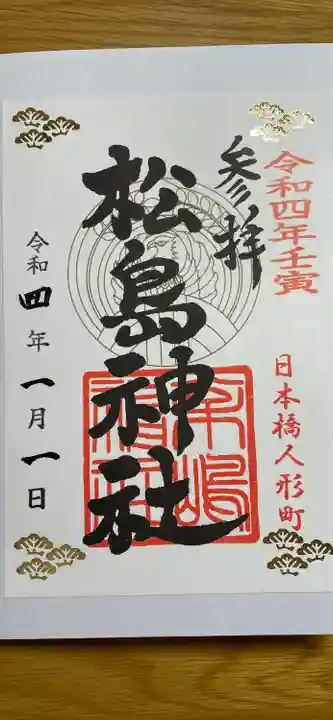 令和四年壬寅
日本橋人形町
参拝
松島神社
令和四年一月一日